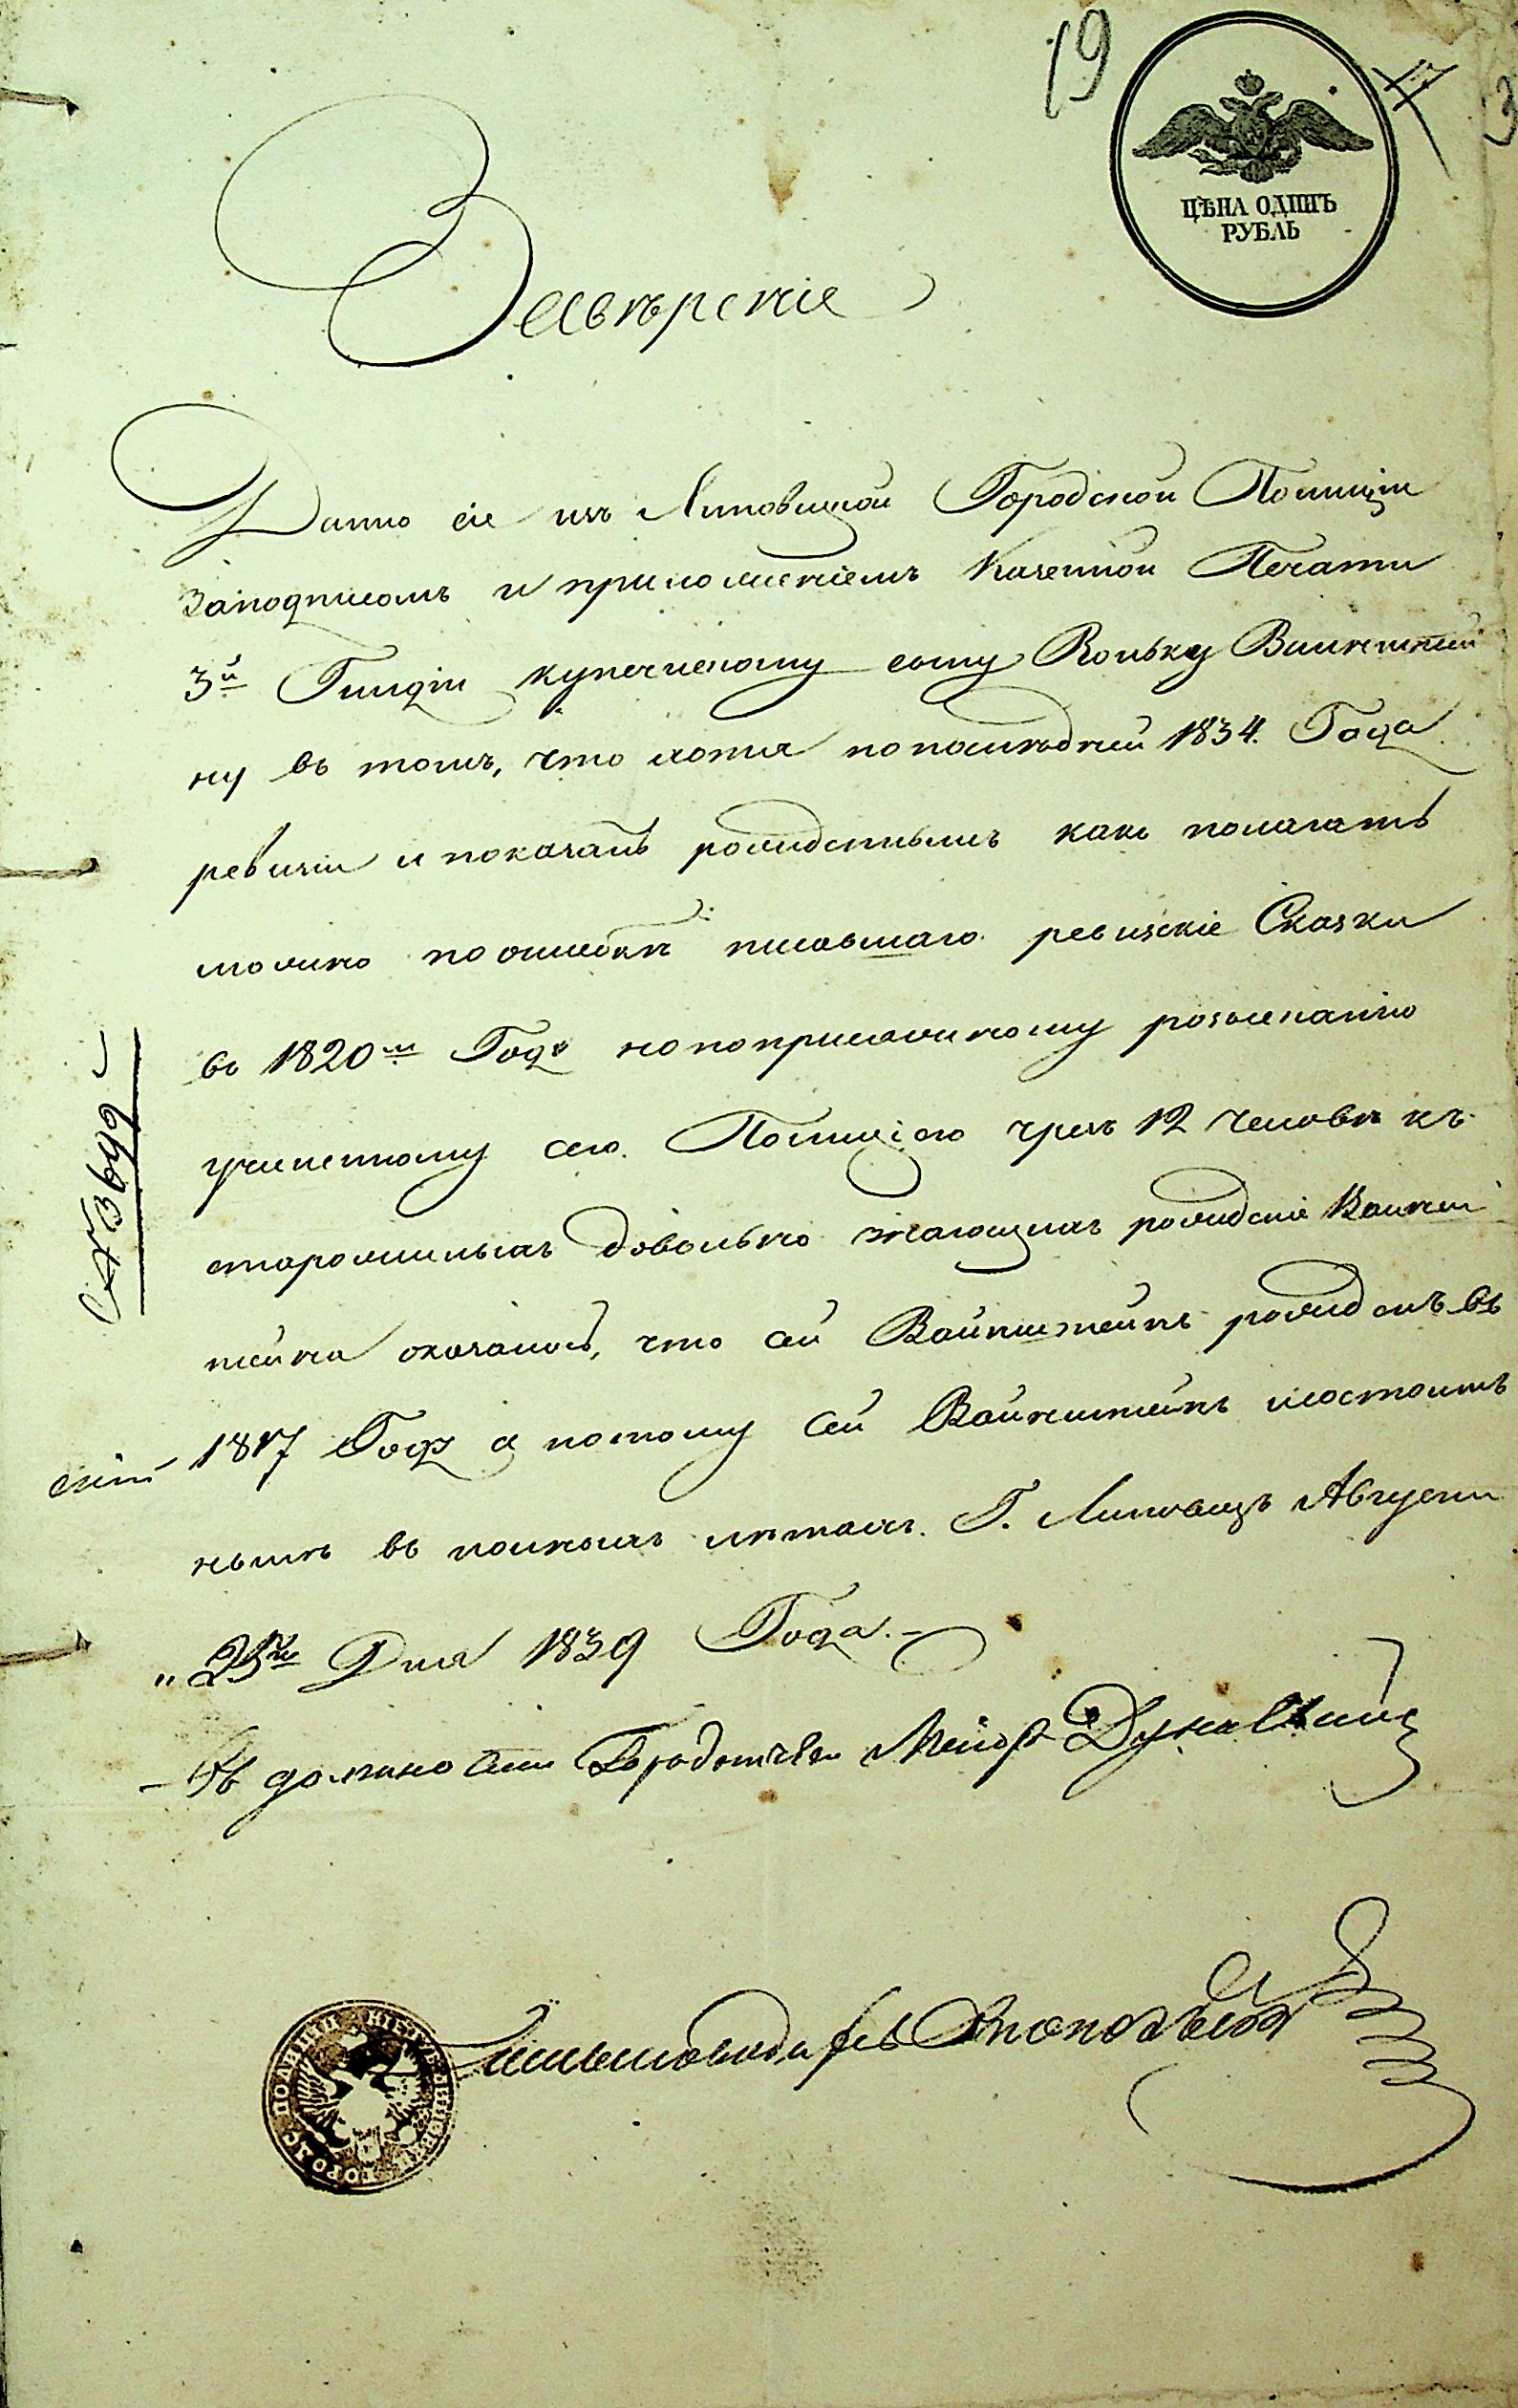 19
ЦѢНА ОДИНЪ
РУБЛЬ
Завѣреніе
Дано сіе изъ Липовецкой Городской Полиціи
заподписомъ и приложеніемъ Казенной Печати
3й Гильдіи купеческому сыну Вольку Вайнштей
ну въ томъ, что хотя попослѣдней 1834. Года
ревизіи и показанъ рожденнымъ какъ полагать
можно поошибкѣ писавшаго ревизскіе Сказки
въ 1820мъ Годѣ нопоприсяжному розысканію
учиненному сею Полиціею чрезъ 12 человѣкъ
старожилыхъ довольно знающихъ рожденіе Вайнш
тейна оказалось, что сей Вайнштейнъ рожденъ въ
1817 Годѣ а потому сей Вайнштейнъ состоитъ
нынѣ въ полныхъ лѣтахъ. Г. Липовецъ Августа
„ 25го Дня 1839 Года.
Въ должности Городничаго Маіоръ
Письмоводитель
№ 3649